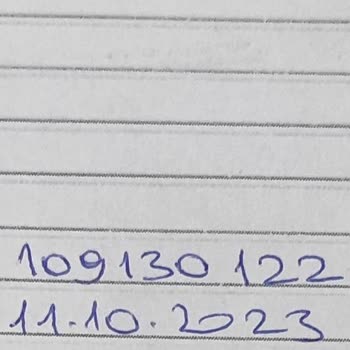 109130 122
11.10.2023